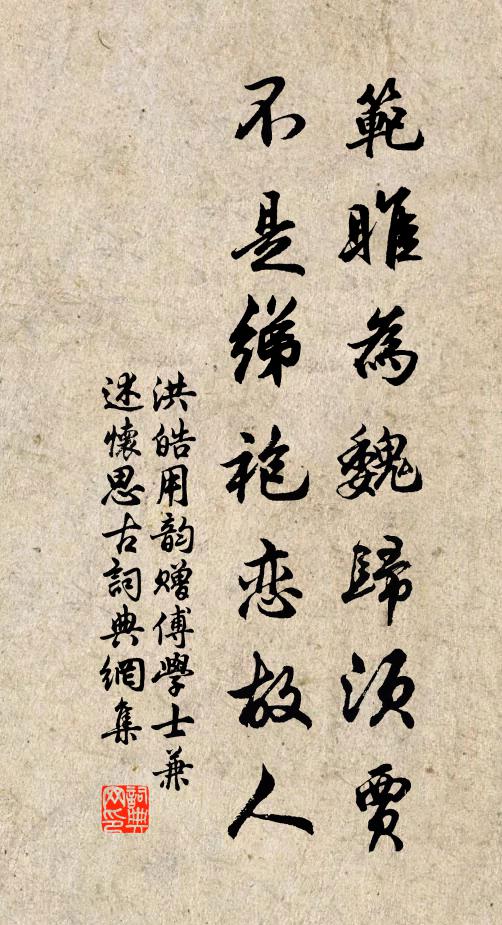 範雎為魏歸須賈
不是綈袍恋故人
洪皓用韵赠傅學士兼
述懷思古詞典網集
詞典网印